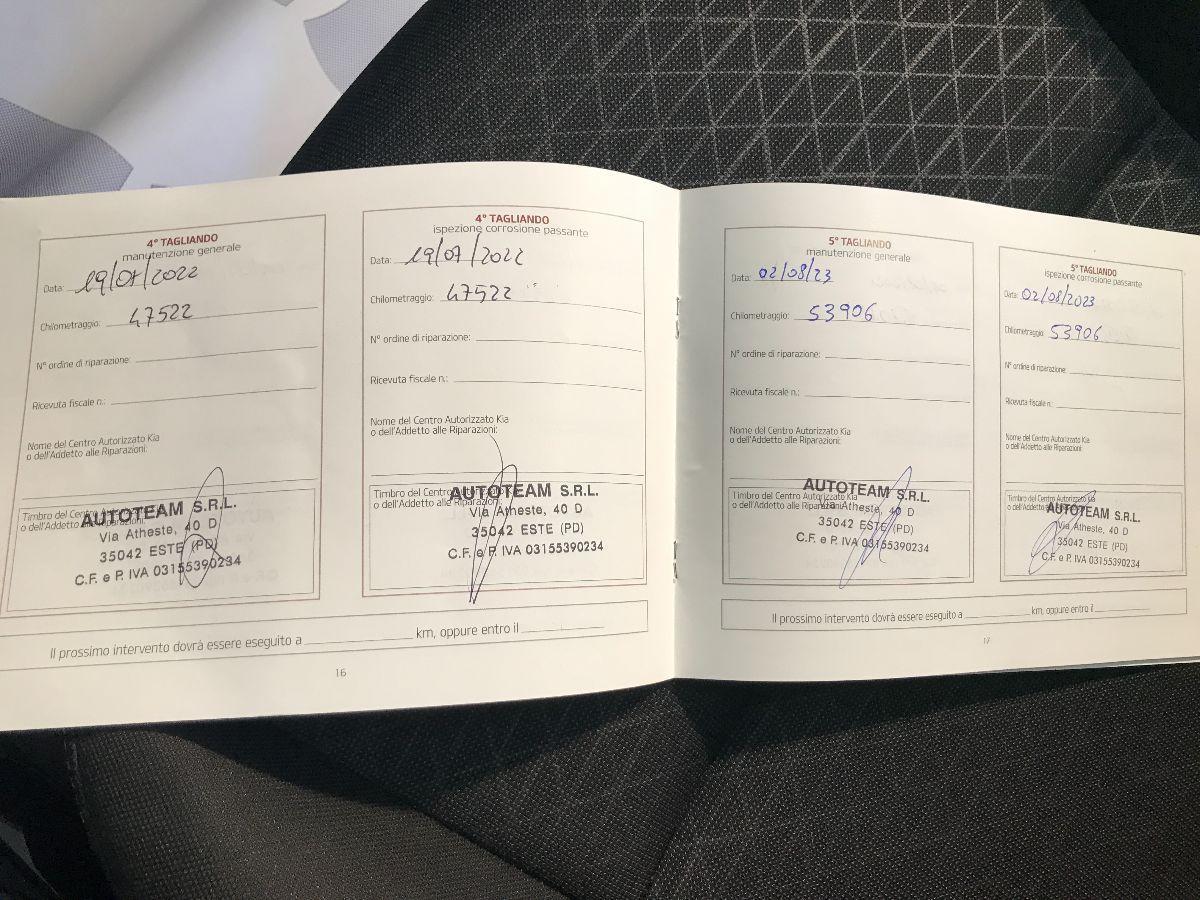 4° TAGLIANDO
manutenzione generale
Data: 19/07/2022
Chilometraggio: 47522
N° ordine di riparazione:
Ricevuta fiscale n.:
Nome del Centro Autorizzato Kia
o dell'Addetto alle Riparazioni:
Timbro del Centro Autorizzato Kia
o dell'Addetto alle Riparazioni:
AUTOTEAM S.R.L.
Via Atheste, 40 D
35042 ESTE (PD)
C.F. e P. IVA 03155390234
4° TAGLIANDO
ispezione corrosione passante
Data: 19/07/2022
Chilometraggio: 47522
N° ordine di riparazione:
Ricevuta fiscale n.:
Nome del Centro Autorizzato Kia
o dell'Addetto alle Riparazioni:
Timbro del Centro Autorizzato Kia
o dell'Addetto alle Riparazioni:
AUTOTEAM S.R.L.
Via Atheste, 40 D
35042 ESTE (PD)
C.F. e P. IVA 03155390234
Il prossimo intervento dovrà essere eseguito a km, oppure entro il
16
5° TAGLIANDO
manutenzione generale
Data: 02/08/23
Chilometraggio: 53906
N° ordine di riparazione:
Ricevuta fiscale n.:
Nome del Centro Autorizzato Kia
o dell'Addetto alle Riparazioni:
Timbro del Centro Autorizzato Kia
o dell'Addetto alle Riparazioni:
AUTOTEAM S.R.L.
Via Atheste, 40 D
35042 ESTE (PD)
C.F. e P. IVA 03155390234
5° TAGLIANDO
ispezione corrosione passante
Data: 02/08/2023
Chilometraggio: 53906
N° ordine di riparazione:
Ricevuta fiscale n.:
Nome del Centro Autorizzato Kia
o dell'Addetto alle Riparazioni:
Timbro del Centro Autorizzato Kia
o dell'Addetto alle Riparazioni:
AUTOTEAM S.R.L.
Via Atheste, 40 D
35042 ESTE (PD)
C.F. e P. IVA 03155390234
Il prossimo intervento dovrà essere eseguito a km, oppure entro il
17